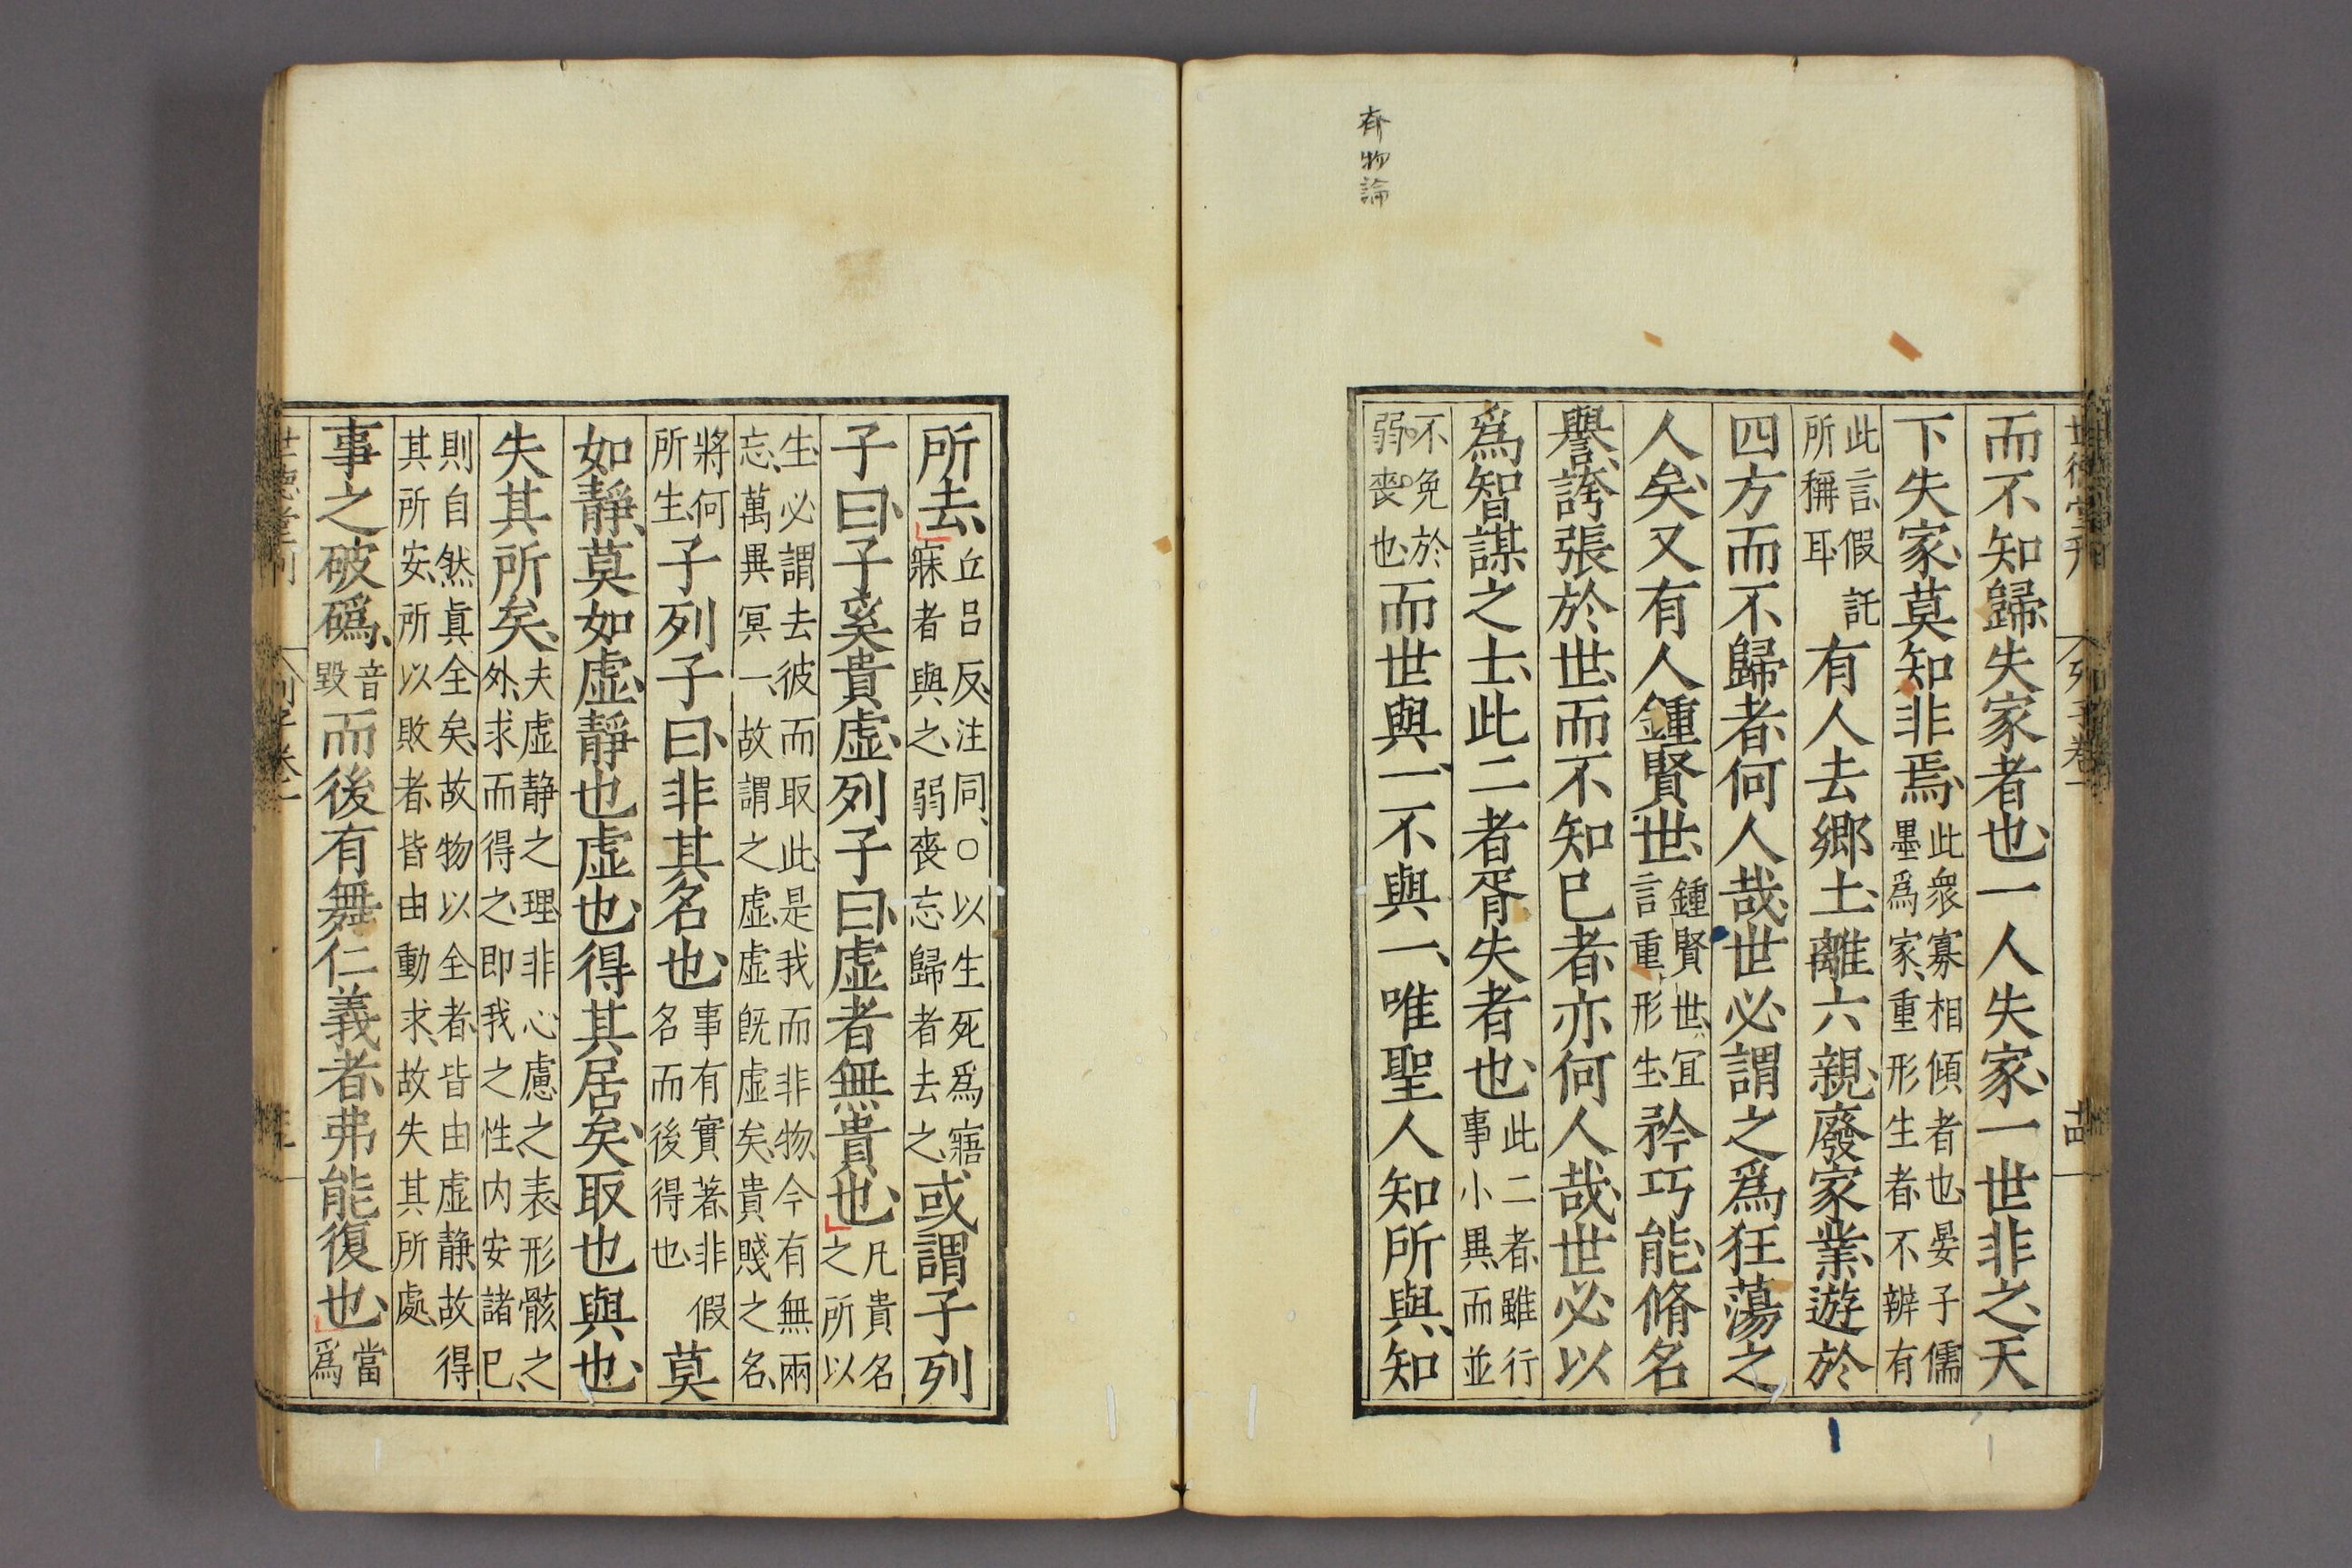 斉物論
世德堂刊 列子卷一 廿四
而不知歸失家者也、一人失家、一世非之、天
下失家、莫知非焉、此衆寡相傾者也、晏子儒
墨爲家、重形生者、不辨有
此言假託
所稱耳
有人去鄉土、離六親、廢家業、遊於
四方而不歸者、何人哉、世必謂之爲狂蕩之
人矣、又有人鍾賢世、鍾賢世、宜
言重形生、
矜巧能、脩名
譽、誇張於世、而不知已者、亦何人哉、世必以
爲智謀之士、此二者胥失者也、此二者、雖行
事小異、而並
不免於
弱喪也、
而世與一、不與一、唯聖人知所與、知
所去、丘呂反、注同、○以生死爲寤
寐者與之、弱喪忘歸者去之、
或謂子列
子曰、子奚貴虛、列子曰、虛者無貴也、凡貴名
之所以
生、必謂去彼而取此、是我而非物、今有無兩
忘、萬異冥一、故謂之虛、虛旣虛矣、貴賤之名、
將何
所生、
子列子曰、非其名也、事有實著、非假
名而後得也、
莫
如靜、莫如虛、靜也虛也、得其居矣、取也與也、
失其所矣、夫虛静之理、非心慮之表、形骸之
外、求而得之、即我之性、内安諸已、
則自然眞全矣、故物以全者、皆由虛静、故得
其所安、所以敗者、皆由動求、故失其所處、
事之破䃣、音
毀
而後有舞仁義者、弗能復也、當
爲